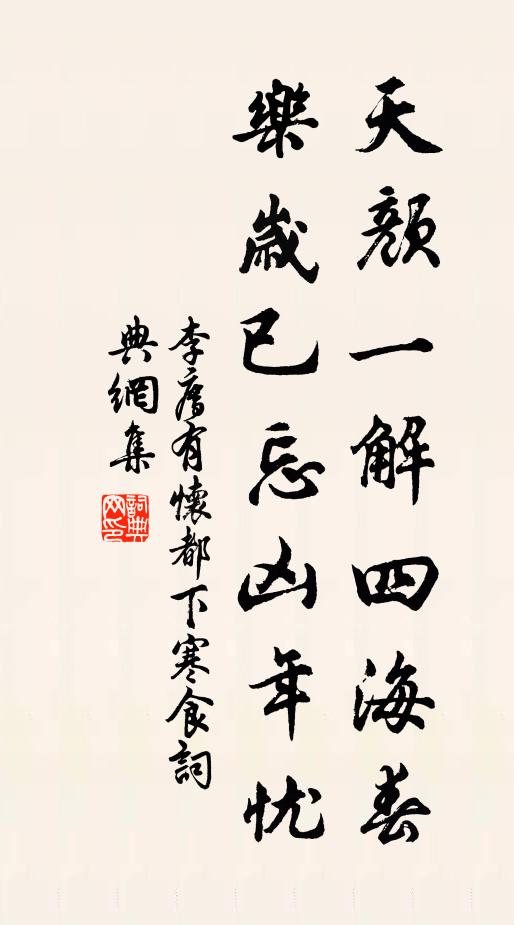 天顏一解四海春
樂歲已忘凶年忧
李廌有懷都下寒食詞
典網集
詞典
网印